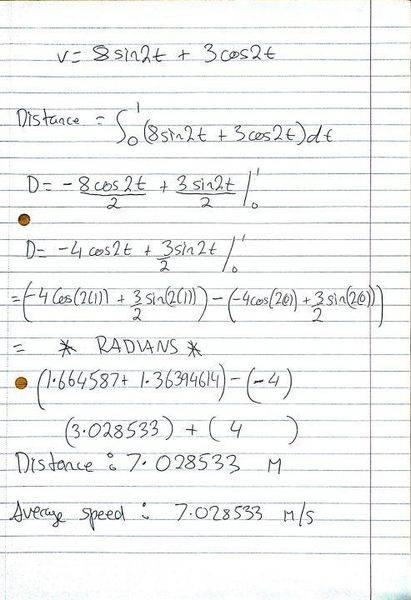 v = 8 sin2t + 3 cos2t
Distance = ∫₀¹ (8 sin2t + 3 cos2t) dt
D = -8 cos 2t/2 + 3 sin2t/2 |₀¹
D = -4 cos2t + 3/2 sin2t |₀¹
= (-4 Cos(2(1)) + 3/2 sin(2(1))) - (-4cos(2(0)) + 3/2 sin(2(0)))
= * RADIANS *
(1.664587 + 1.36394614) - (-4)
(3.028533) + ( 4 )
Distance : 7.028533 M
Average speed : 7.028533 M/S